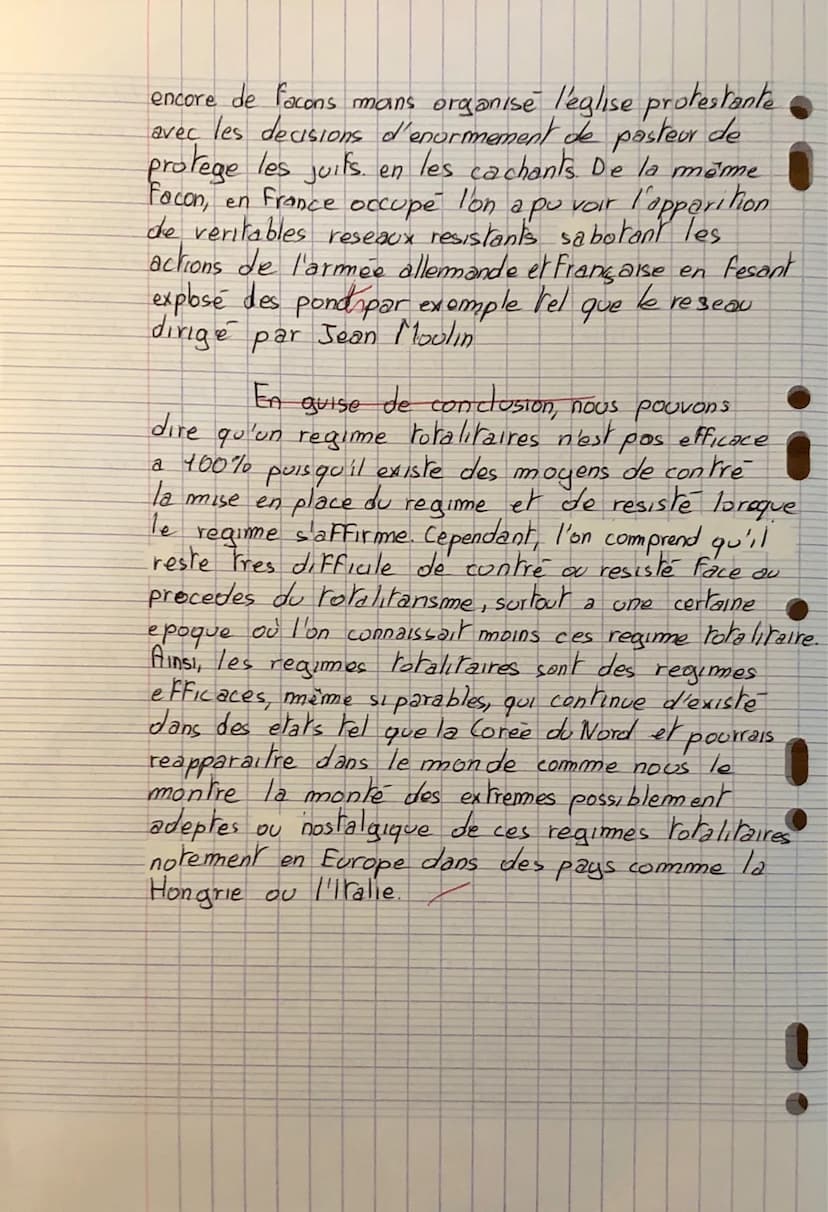 encore de facons moins organisé l'église protestante
avec les decisions d'enormement de pasteur de
protege les juifs. en les cachants. De la même
Facon, en France occupé l'on a pu voir l'apparition
de veritables reseaux resistants sabotant les
actions de l'armée allemande et Française en fesant
explosé des pond par exemple tel que le reseau
dirigé par Jean Moulin
En guise de conclusion, nous pouvons
dire qu'un regime totalitaires n'est pas efficace
a 100% puisqu'il existe des moyens de contré
la mise en place du regime et de resisté lorsque
le regime s'affirme. Cependant, l'on comprend qu'il
reste tres difficile de contré ou resisté face au
procedes du totalitarisme, surtout a une certaine
epoque où l'on connaissait moins ces regime totalitaire.
Ainsi, les regimes totalitaires sont des regimes
efficaces, même si parables, qui continue d'existé
dans des etats tel que la Corée du Nord et pourrais
reapparaitre dans le monde comme nous le
montre la monté des extremes possiblement
adeptes ou nostalgique de ces regimes totalitaires
notement en Europe dans des pays comme la
Hongrie ou l'Italie.